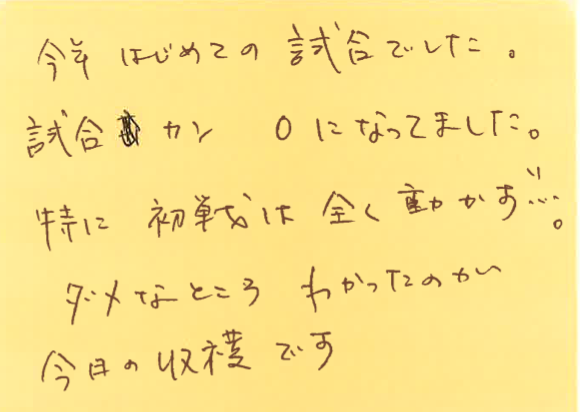 今年 はじめての 試合でした。
試合 カン 0になってました。
特に 初戦は 全く動かず…。
ダメなところ わかったのが
今日の収穫です